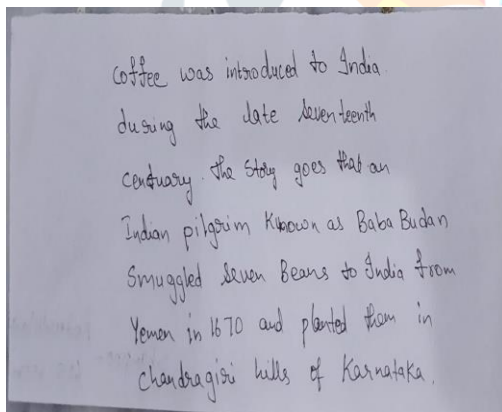 Coffee was introduced to India.
during the late seventeenth
centuary. The Story goes that an
Indian pilgrim Known as Baba Budan
Smuggled seven Beans to India from
Yemen in 1670 and planted them in
Chandragiri hills of Karnataka.